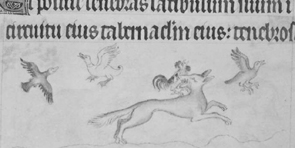 Et posuit tenebras latibulum suum i
circuitu eius tabernaclm eius: tenebros